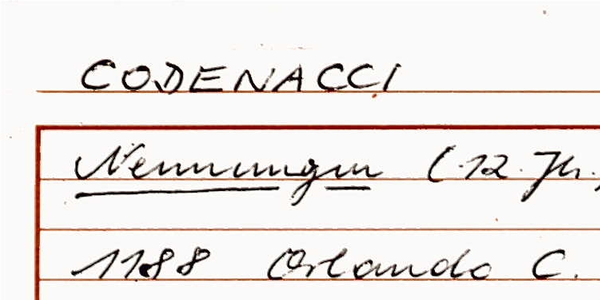 CODENACCI
Nennungen (12. Jh.)
1188 Orlando C.